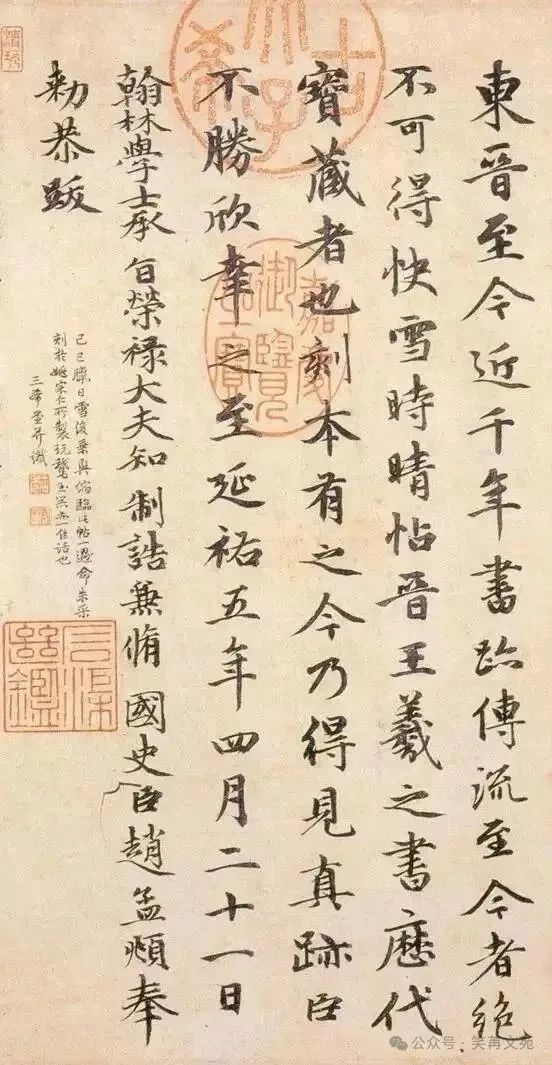 東晉至今近千年書跡傳流至今者絕
不可得快雪時晴帖晉王羲之書歷代
寶藏者也刻本有之今乃得見真跡臣
不勝欣幸之至延祐五年四月二十一日
翰林學士承旨榮祿大夫知制誥兼脩國史臣趙孟頫奉
勅恭跋
己巳臘日雪後乘興偶臨此帖一過命朱采
刻於姚宗仁所製玩鵞玉器亦一佳話也
三希堂并識
古希天子
嘉慶御覽之寶
石渠繼鑑
公众号·笑苒文苑